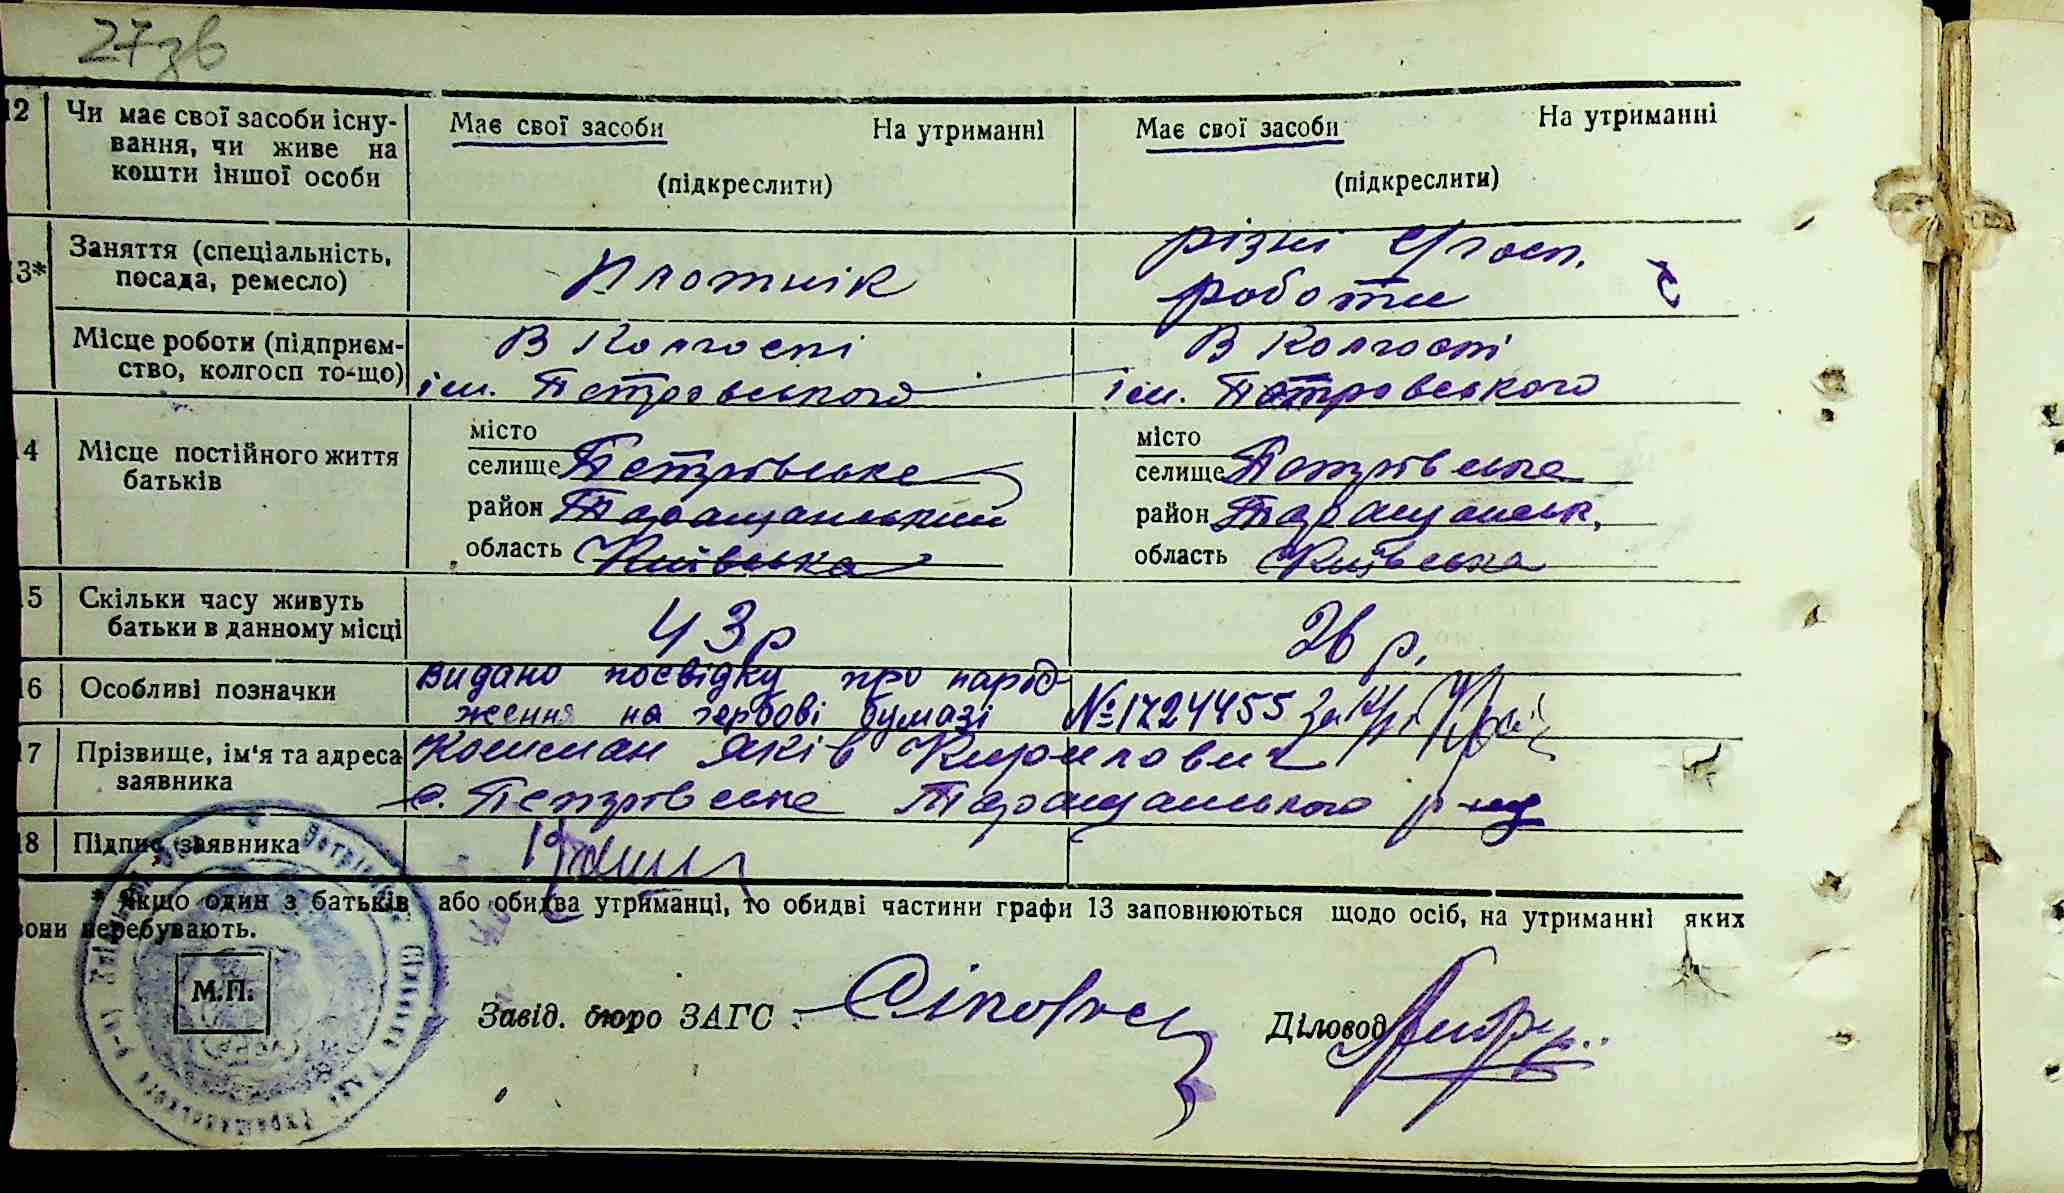 27зв
12 Чи має свої засоби існу- Має свої засоби На утриманні Має свої засоби На утриманні
вання, чи живе на
кошти іншої особи (підкреслити) (підкреслити)
13* Заняття (спеціальність, Плотнік різні с/госп.
посада, ремесло) роботи
Місце роботи (підприєм- В Колгоспі В Колгоспі
ство, колгосп то-що) ім. Петровського ім. Петровського
14 Місце постійного життя місто місто
батьків селище Петрівське селище Петрівське
район Таращанський район Таращанськ.
область Київська область Київська
15 Скільки часу живуть 43 р 26 р.
батьки в данному місці
16 Особливі позначки видано посвідку про народ
ження на гербові бумазі №1724455
17 Прізвище, ім'я та адреса Кошман Яків Кирилович
заявника с. Петрівське Таращанського р-ну
18 Підпис заявника
* Якщо один з батьків або обидва утриманці, то обидві частини графи 13 заповнюються щодо осіб, на утриманні яких
вони перебувають.
М.П.
Завід. бюро ЗАГС Діловод